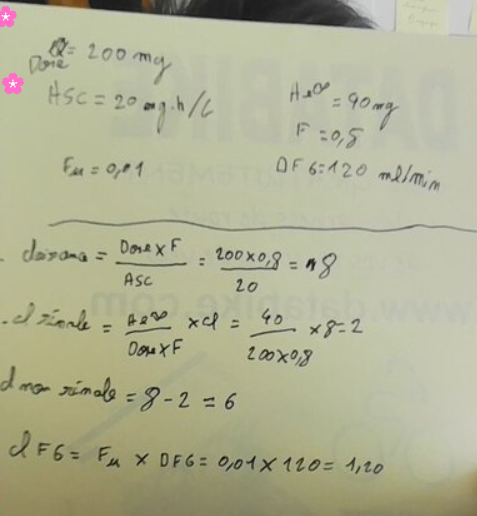 Dose = 200 mg
ASC = 20 mg.h/L
Ae∞ = 40 mg
F = 0,8
Fu = 0,01
DFG = 120 ml/min
= Dose x F / ASC = 200 x 0,8 / 20 = 8
cl rénale = Ae∞ / Dose x F x cl = 40 / 200 x 0,8 x 8 = 2
cl non rénale = 8 - 2 = 6
cl FG = Fu x DFG = 0,01 x 120 = 1,20